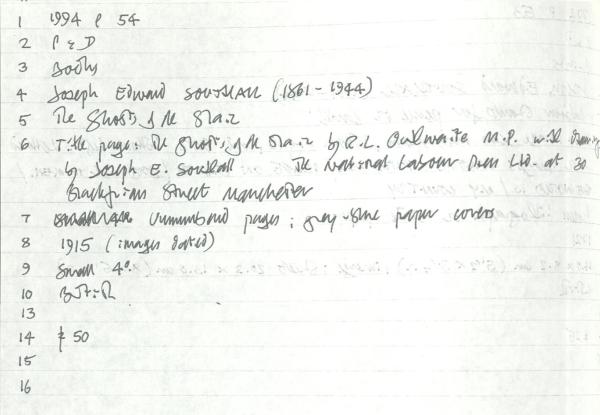 1 1994 P 54
2 P & D
3 Books
4 Joseph Edward SOUTHALL (1861-1944)
5 The Ghosts of the Slain
6 Title page: The Ghosts of the Slain by R.L. Outhwaite M.P. with drawings
by Joseph E. Southall The National Labour Press Ltd. at 30
Blackfriars Street Manchester
7 unnumbered pages; grey-blue paper covers
8 1915 (images dated)
9 Small 4º.
10 British
13
14 50
15
16